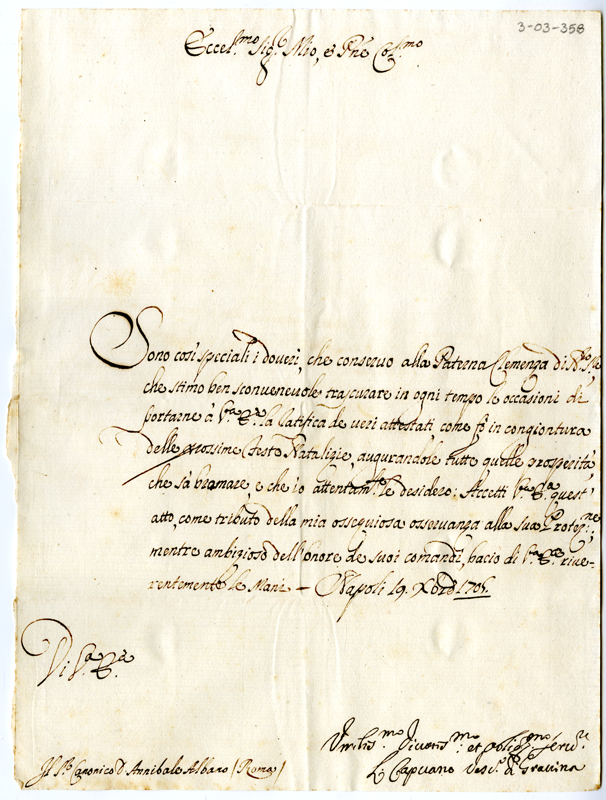 3-03-358
Eccel.mo Sig.r Mio, e Pne Col.mo
Sono così speciali i doveri, che conservo alla Paterna Clemenza di
che stimo ben sconvenevole trascurare in ogni tempo le occasioni di
portarne à V.ra E. la ratifica de veri attestati, come fò in congiontura
delle prossime Feste Natalizie, augurandole tutte quelle prosperità,
che sà bramare, e che io attentam.te le desidero: Accetti V.ra E. quest'
atto, come tributo della mia ossequiosa osservanza alla sua Protez.ne
mentre ambizioso dell'onore de suoi comandi, bacio di V.ra E. rive-
rentemente le Mani — Napoli 19. Xbre 1705.
Di V.ra E.
Umilis.mo Divotis.mo et oblig.mo Serv.re
Capuano Vesc.o di Gravina
Il S.r Canonico D Annibale Albano (Roma)